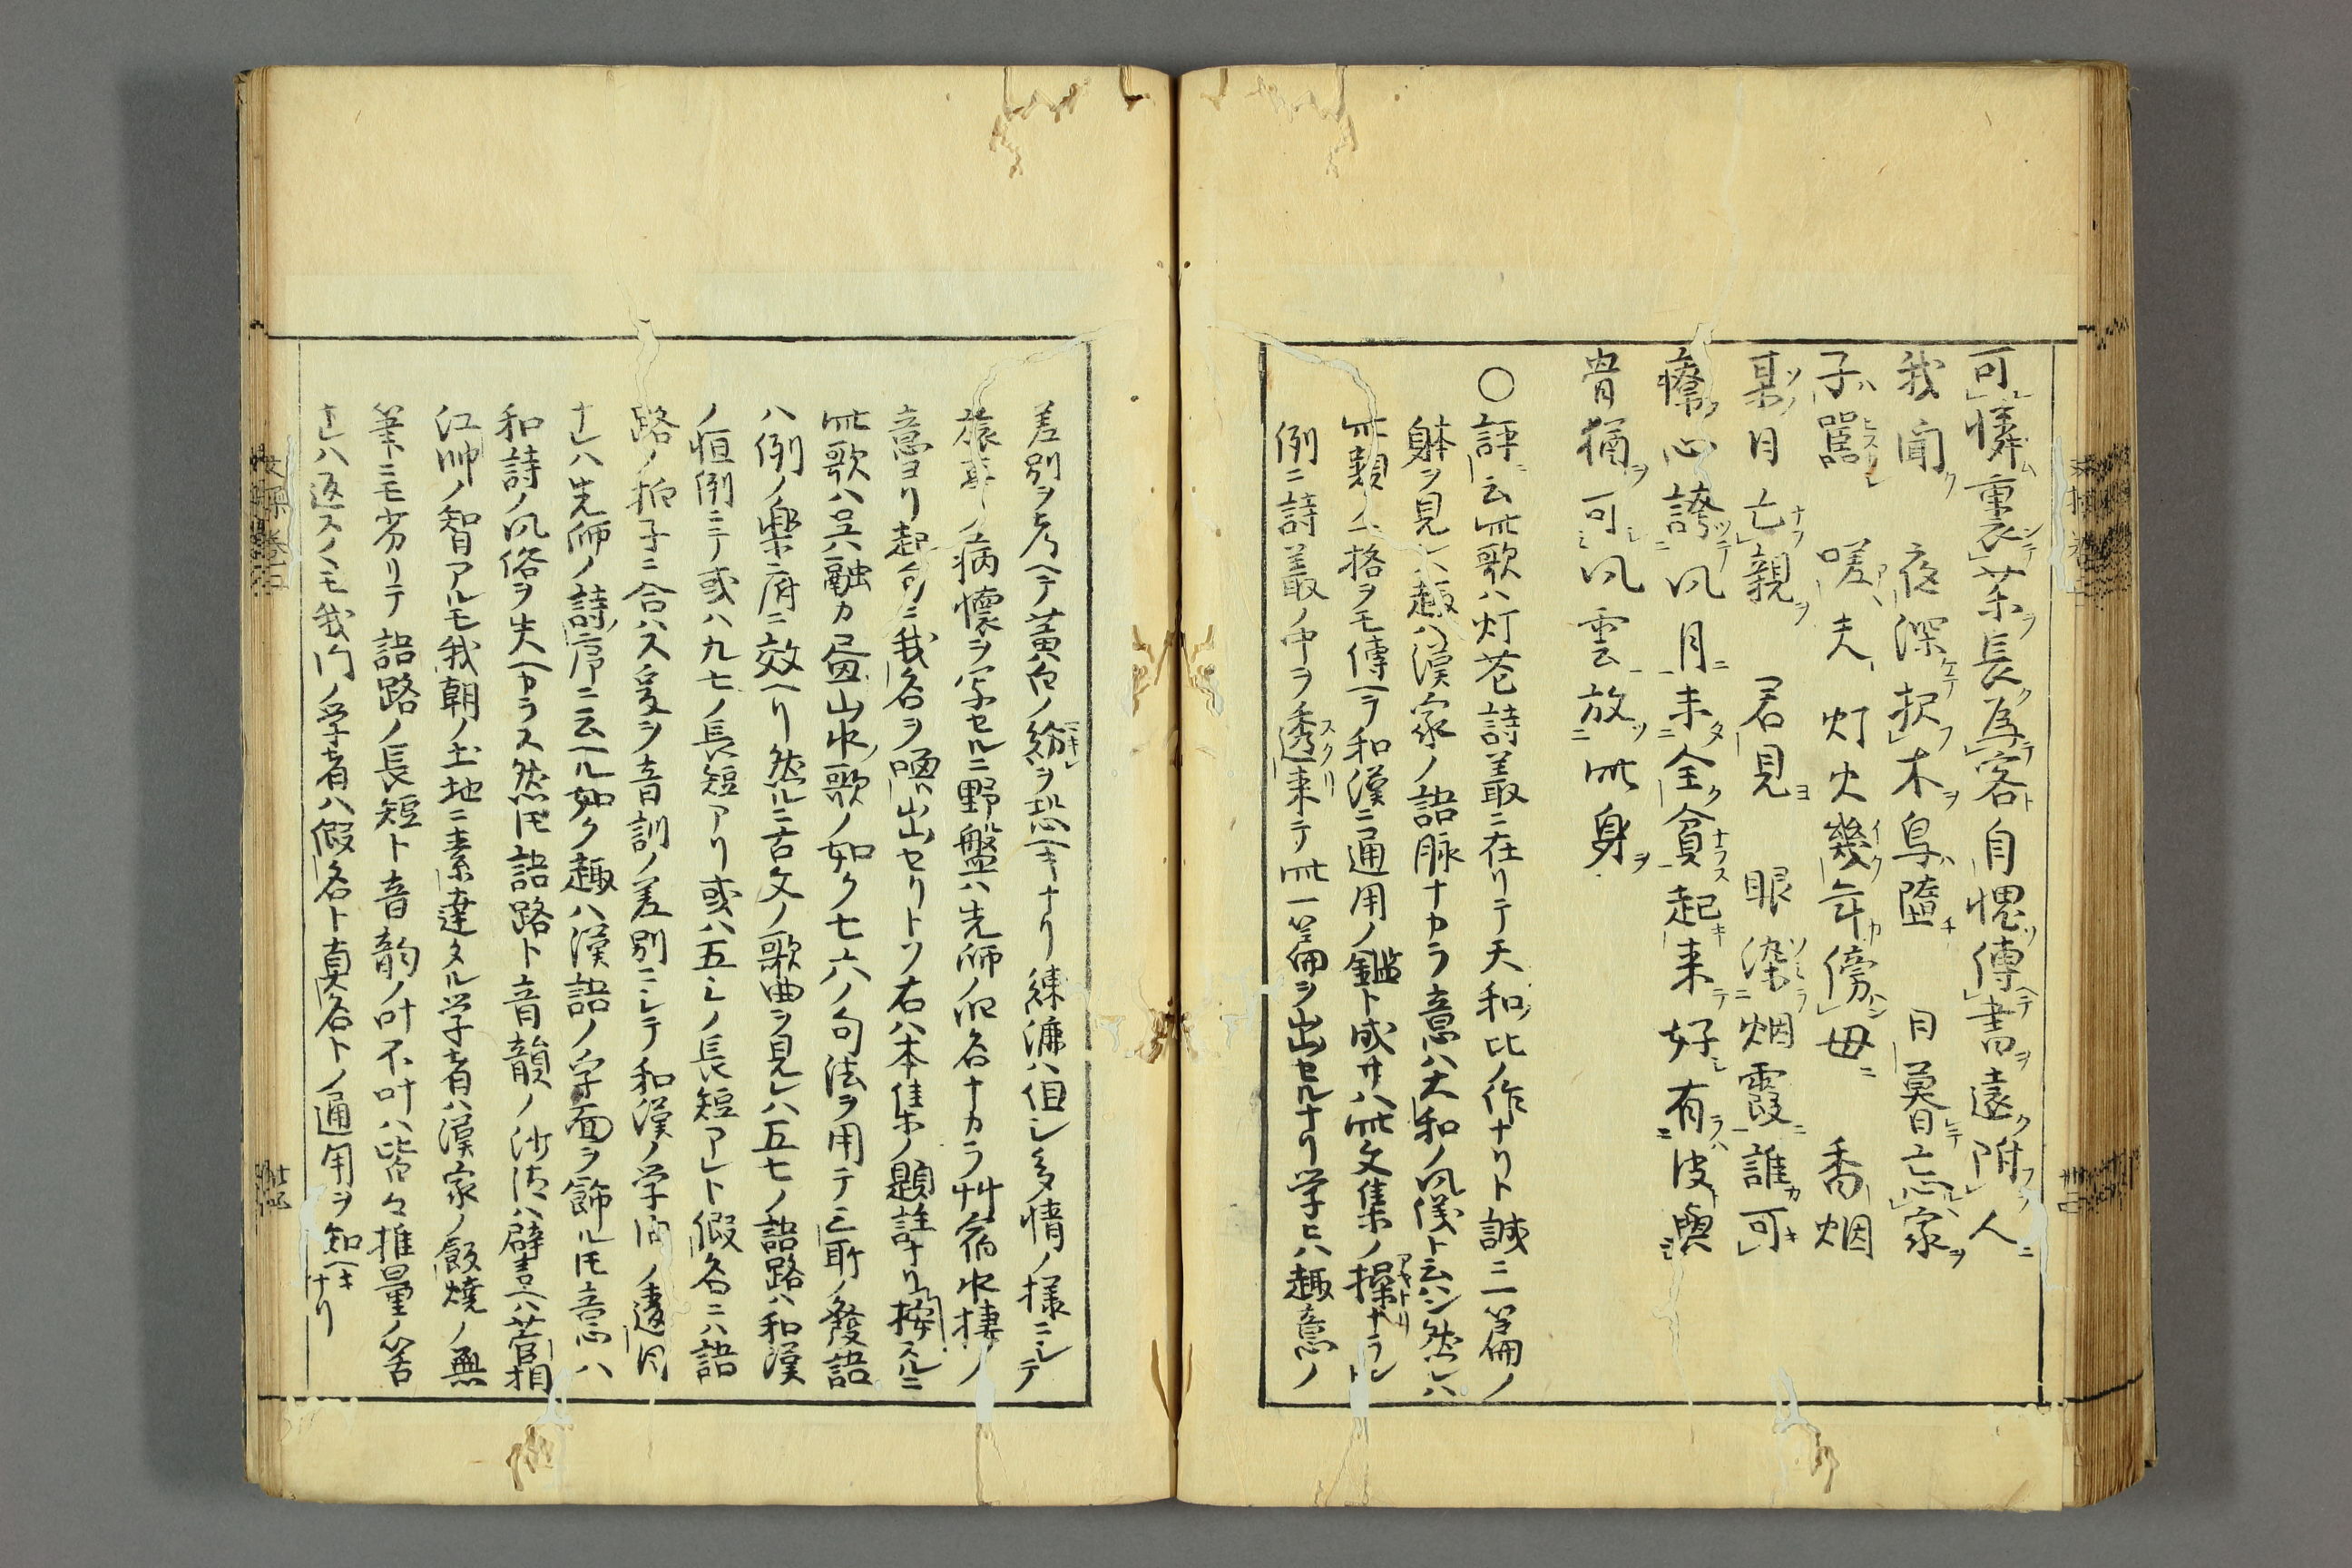 可憐重裘茶長為客自愧傳書遠附人
我聞夜深択木鳥墮月暮忘家
子鼾嗟夫灯火幾年傍母香烟
某月亡親君見眼染烟霞誰可
療心誇风月未全貧起来好有彼與
骨猶可风雲放此身
〇評ニ云此歌ハ灯花詩叢ニ在リテ天和比ノ作ナリト誠ニ二篇ノ
躰ヲ見レハ趣ハ漢家ノ語脉ナカラ意ハ大和ノ风儀ト云ハン然レハ
此類ノ一格ヲモ傳ヘテ和漢ニ通用ノ鑑ト成サハ此文集ノ操ナラン
例ニ詩叢ノ中ヲ透来テ此一篇ヲ出セルナリ学ヒハ趣意ノ
差別ヲ考ヘテ黄白ノ紛ヲ恐ヘキナリ練漉ハ但シ多情ノ様ニシテ
旅亭ノ病懷ヲ写セルニ野盤ハ先師ノ仮名ナカラ艸宿水棲ノ
意ヨリ起句ニ我名ヲ喚出セリトソ右ハ本集ノ題註ナリ按スルニ
此歌ハ呉融カ昼山水ノ歌ノ如ク七六ノ句法ヲ用テ二所ノ發語
ハ例ノ樂府ニ效ヘリ然ルニ古文ノ歌曲ヲ見レハ五七ノ語路ハ和漢
ノ恒例ニテ或ハ九七ノ長短アリ或ハ五七ノ長短アレト假名ニハ語
路ノ拍子ニ合ハス爰ヲ音訓ノ差別ニシテ和漢ノ学問ノ遠因
ナレハ先師ノ詩序ニ云ヘル如ク趣ハ漢語ノ字面ヲ飾ルトモ意ハ
和詩ノ风俗ヲ失ヘカラス然トモ語路ト音韻ノ沙汰ハ譬ヘハ菅相
江帥ノ智アルモ我朝ノ土地ニ素達タル学者ハ漢家ノ飯焼ノ無
筆ニモ劣リテ語路ノ長短ト音韵ノ叶不叶ハ皆々推量ノ筈
ナレハ返スくモ我門ノ学者ハ假名ト真名トノ通用ヲ知ヘキナリ